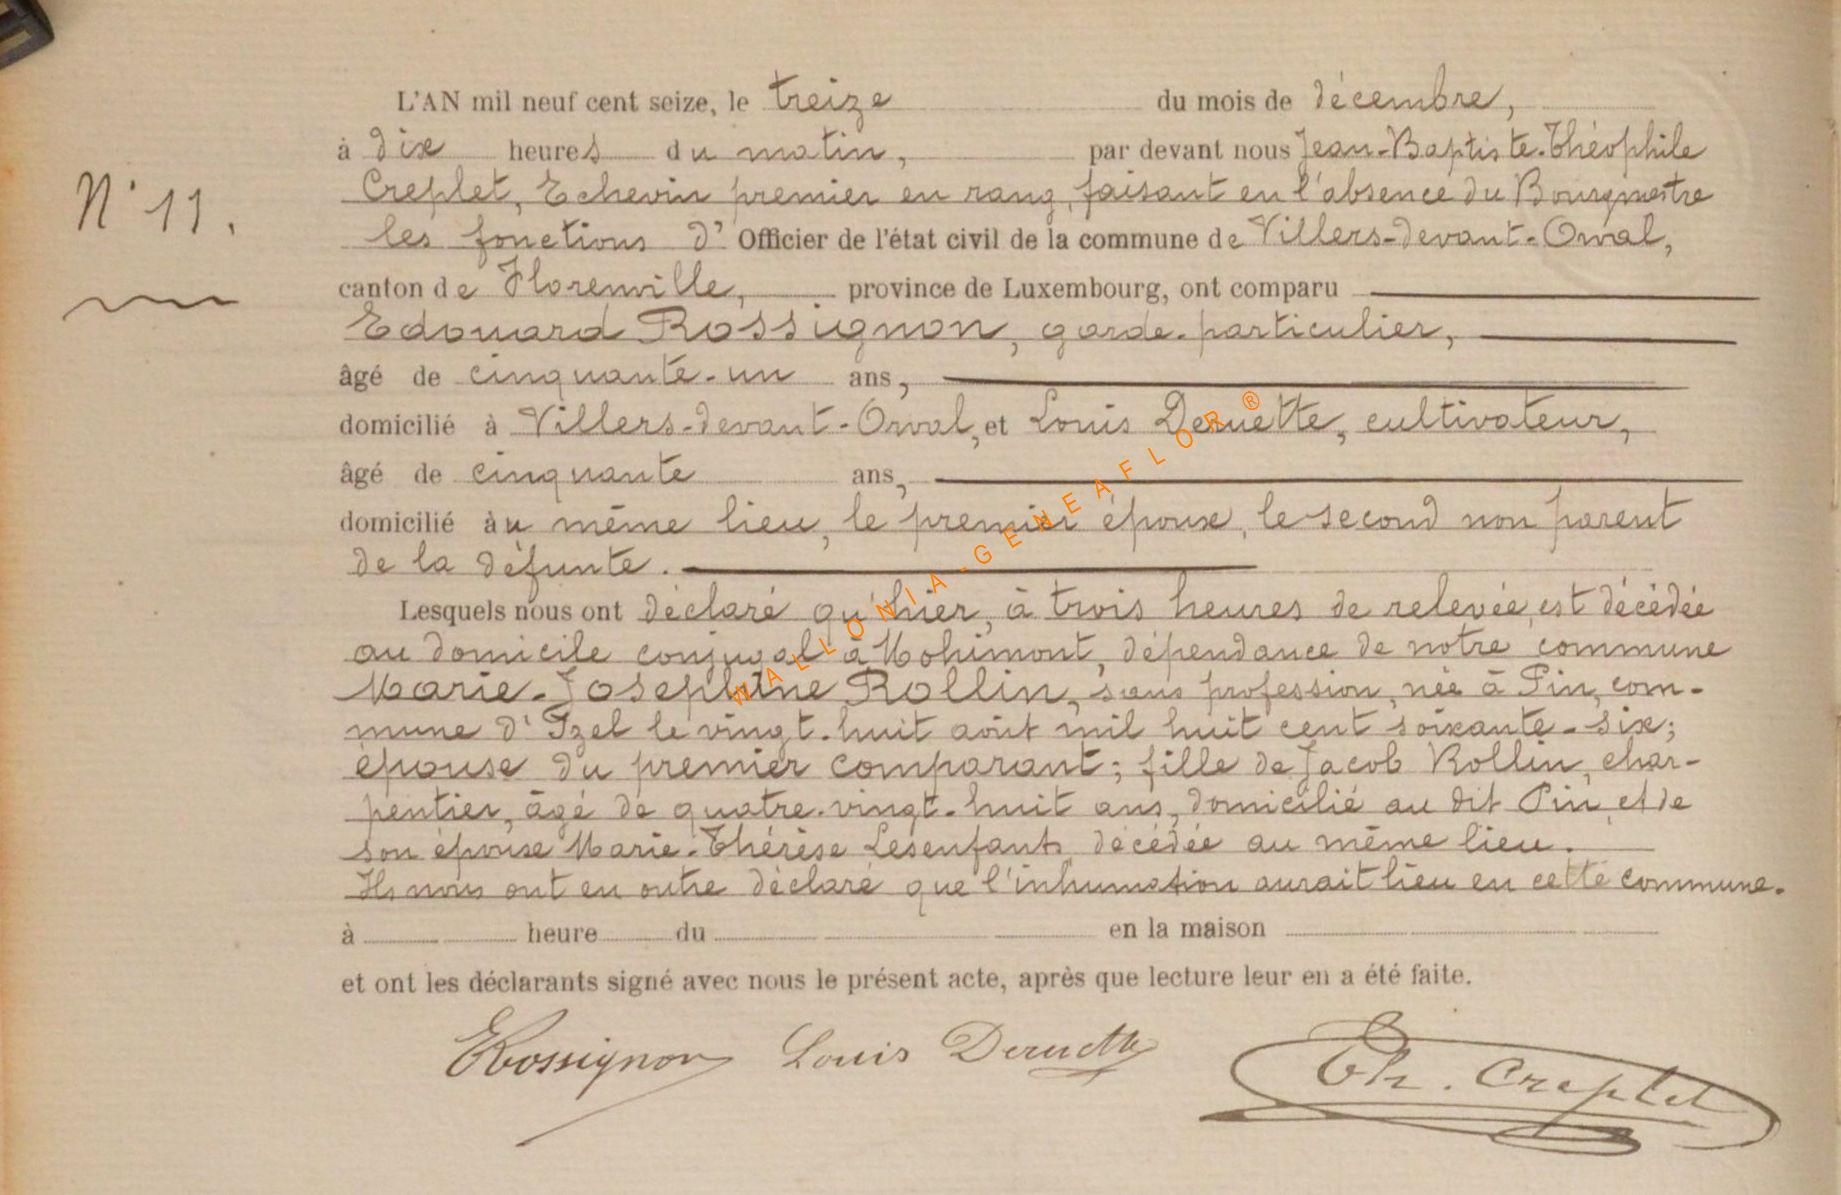 L'AN mil neuf cent seize, le treize du mois de décembre,
à dix heures du matin, par devant nous Jean-Baptiste-Théophile
N° 11.
Creplet, Echevin premier en rang, faisant en l'absence du Bourgmestre
les fonctions d' Officier de l'état civil de la commune de Villers-devant-Orval,
canton de Florenville, province de Luxembourg, ont comparu
Edouard Rossignon, garde-particulier,
âgé de cinquante-un ans,
domicilié à Villers-devant-Orval, et Louis Deruette, cultivateur,
âgé de cinquante ans,
domicilié au même lieu, le premier époux, le second non parent
de la défunte.
Lesquels nous ont déclaré qu'hier, à trois heures de relevée, est décédée
au domicile conjugal à Mohimont, dépendance de notre commune
Marie-Josephine Rollin, sans profession, née à Pin, com-
mune d'Izel le vingt-huit août mil huit cent soixante-six;
épouse du premier comparant; fille de Jacob Rollin, char-
pentier, âgé de quatre-vingt-huit ans, domicilié au dit Pin, et de
son épouse Marie-Thérèse Lesenfants décédée au même lieu.
Ils nous ont en outre déclaré que l'inhumation aurait lieu en cette commune.
à heure du en la maison
et ont les déclarants signé avec nous le présent acte, après que lecture leur en a été faite.
ERossignon Louis Deruette Th. Creplet
WALLONIA-GENEAFLOR ®